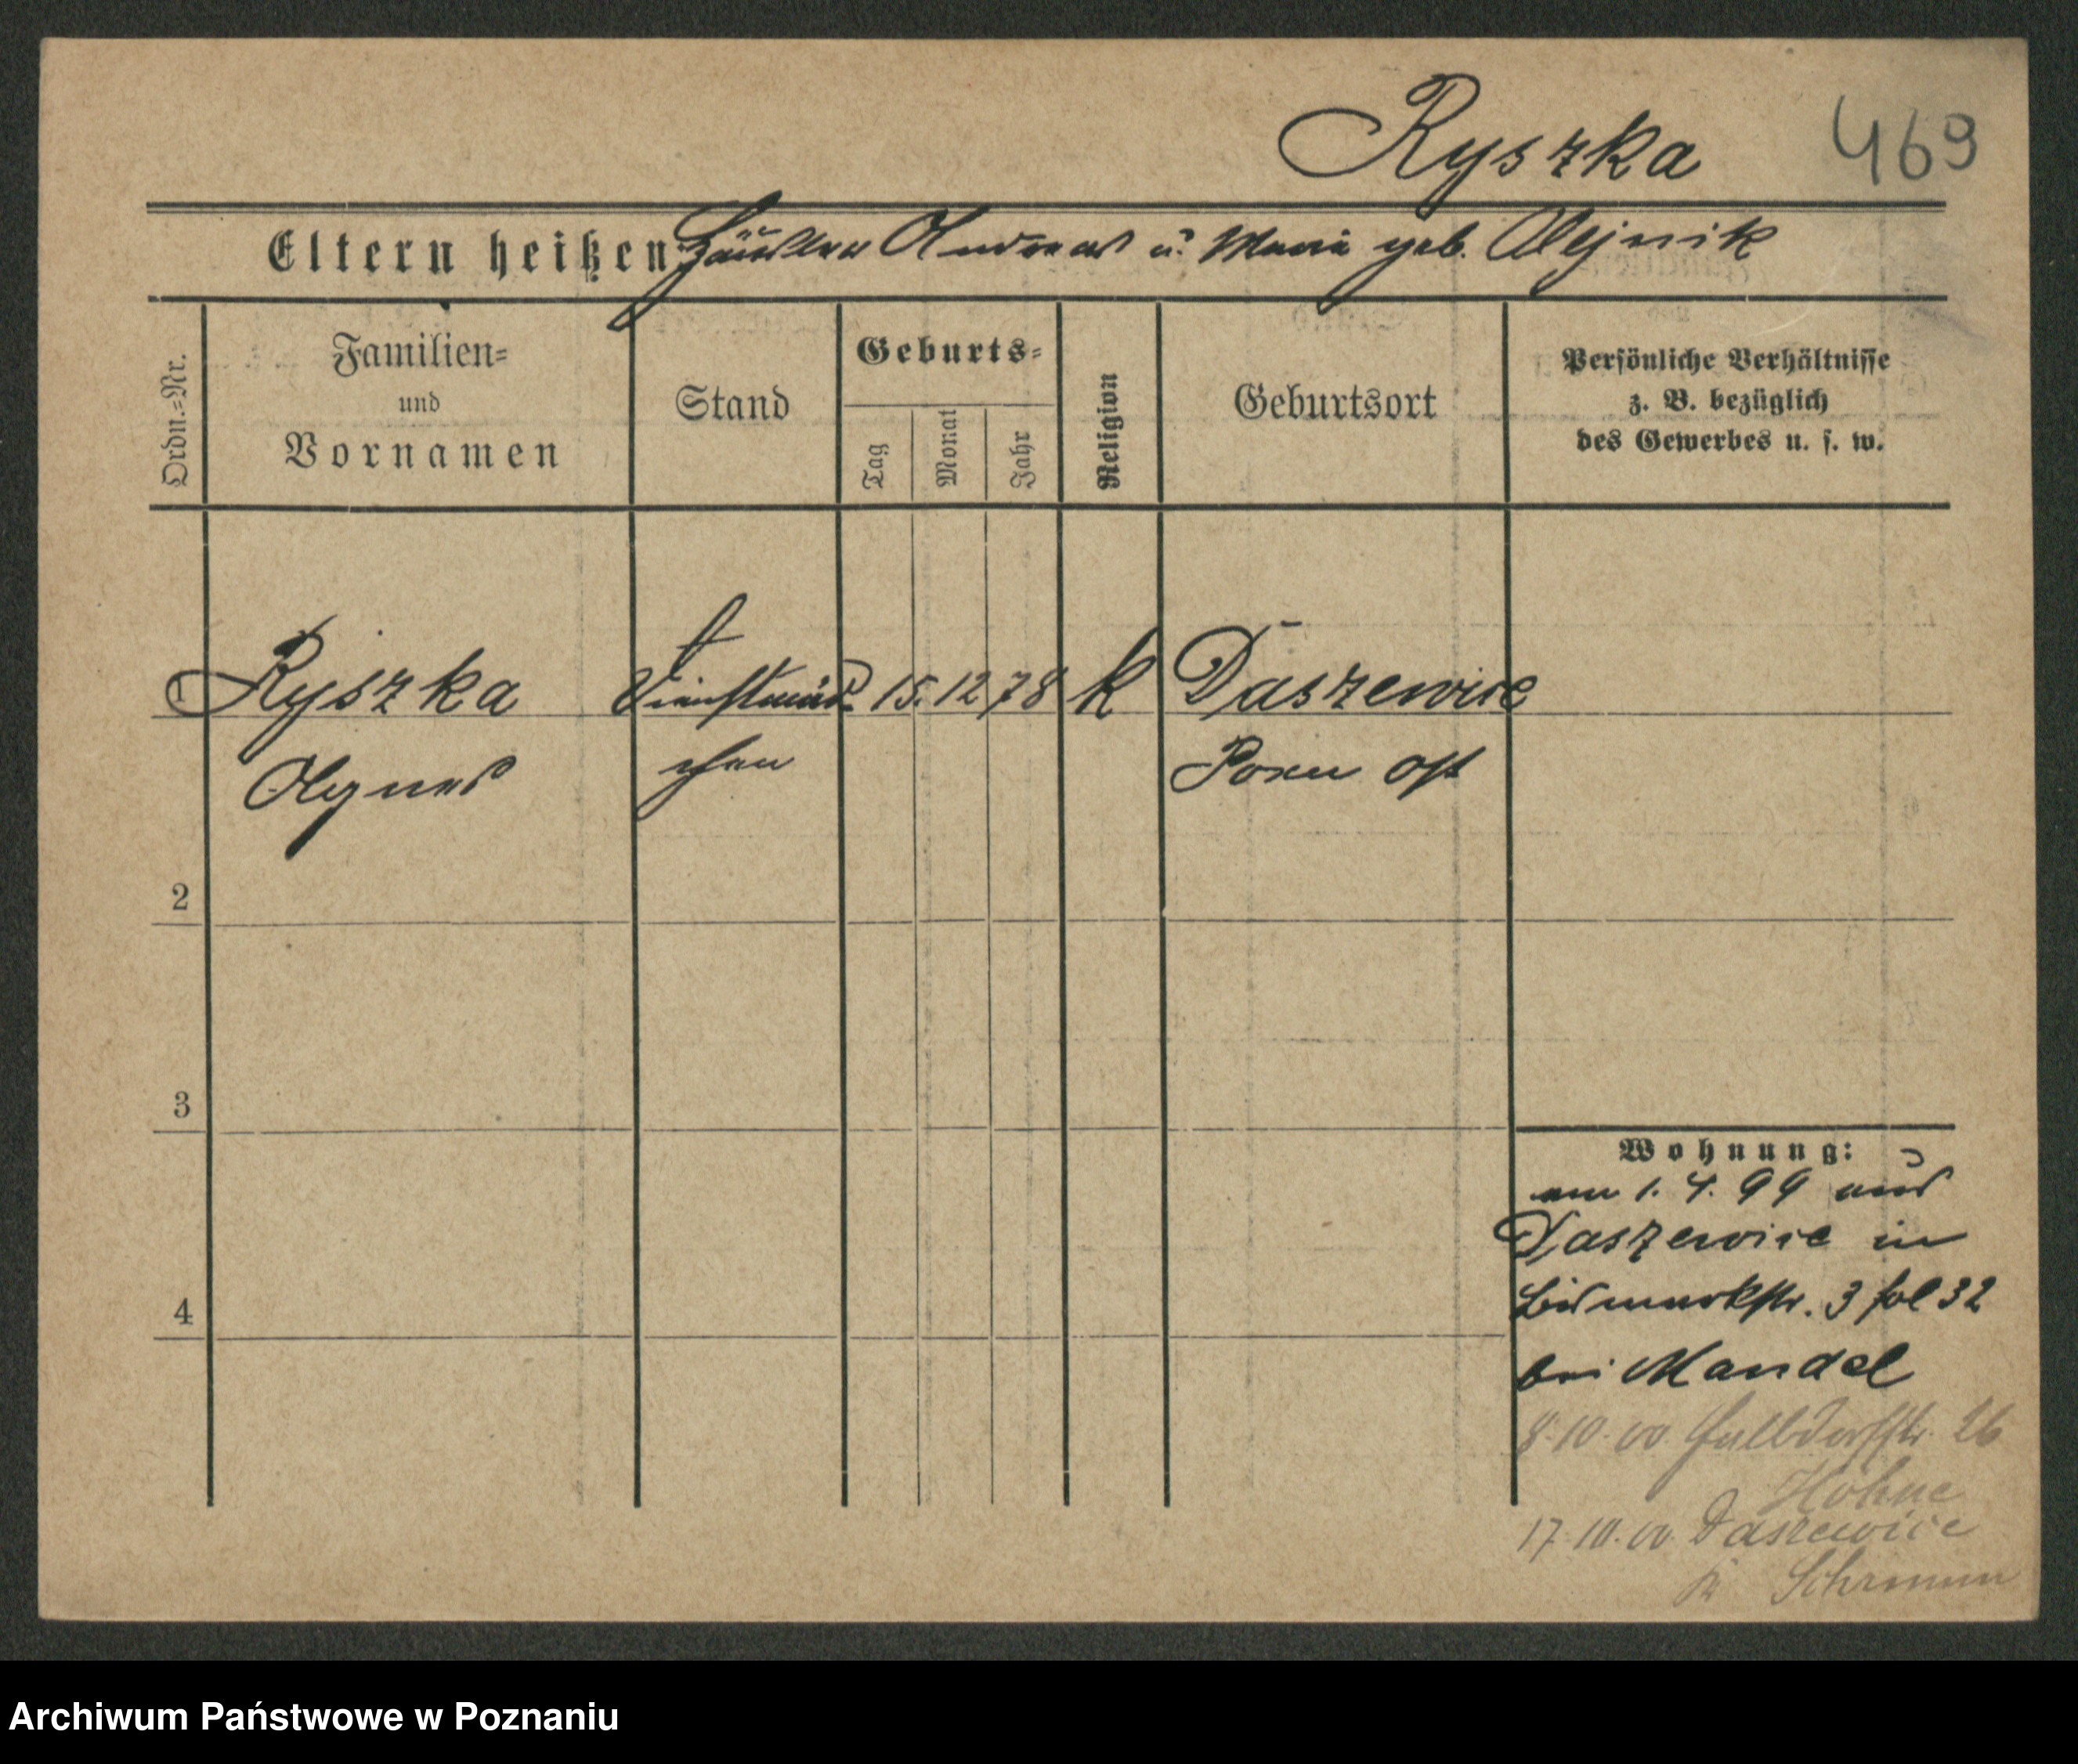 Ryszka 469
Eltern heißen Häusler Andreas u. Marie geb. Olejnik
Ordn.=Nr.
Familien=
und
Vornamen
Stand
Geburts=
Tag
Monat
Jahr
Religion
Geburtsort
Persönliche Verhältnisse
z. B. bezüglich
des Gewerbes u. s. w.
1 Ryszka Dienstmäd= 15. 12 78 k Daszewice
Agnes chen Posen Ost
2
3
4
Wohnung:
am 1. 4. 99 aus
Daszewice in
Bismarkstr. 3 fol 32
bei Mandel
8.10.00 Halbdorfstr. 26
Höhne
17.10.00 Daszewice
Kr Schrimm
Archiwum Państwowe w Poznaniu